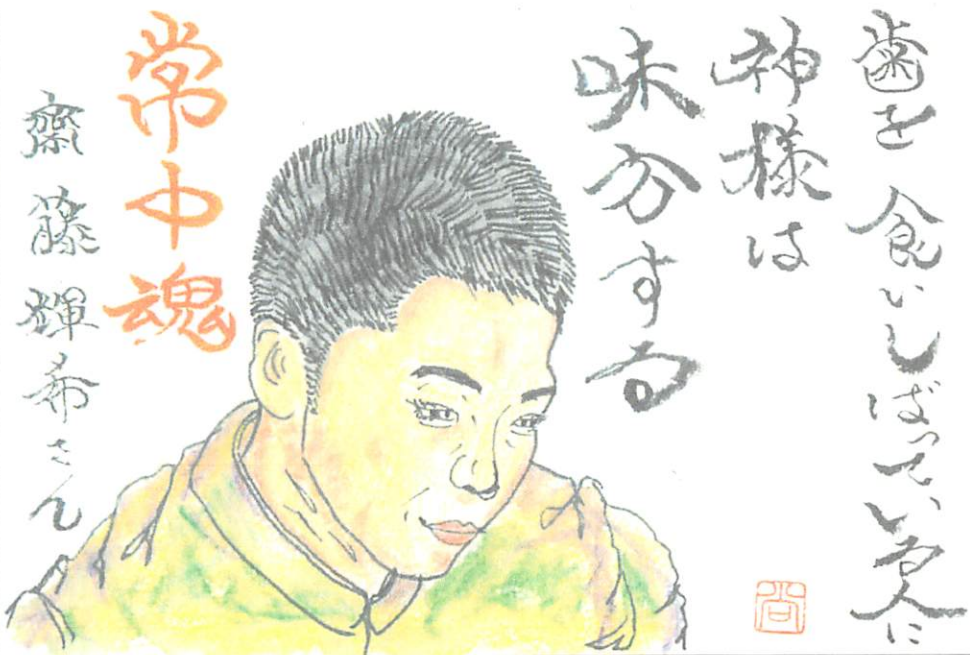 歯を食いしばっている人に
神様は
味方する
常中魂
齋藤輝希さん
尚